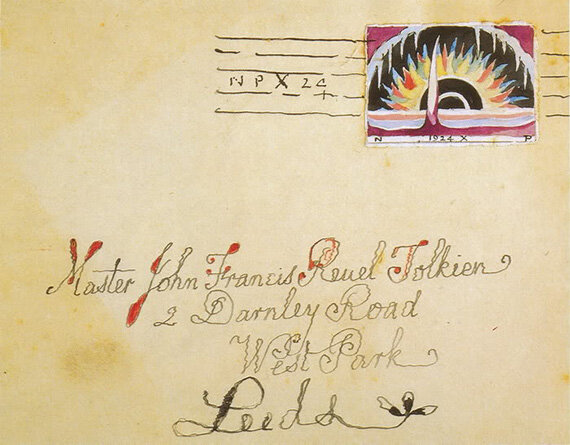 N P X 24
N 1924 X P
Master John Francis Reuel Tolkien
2 Darnley Road
West Park
Leeds